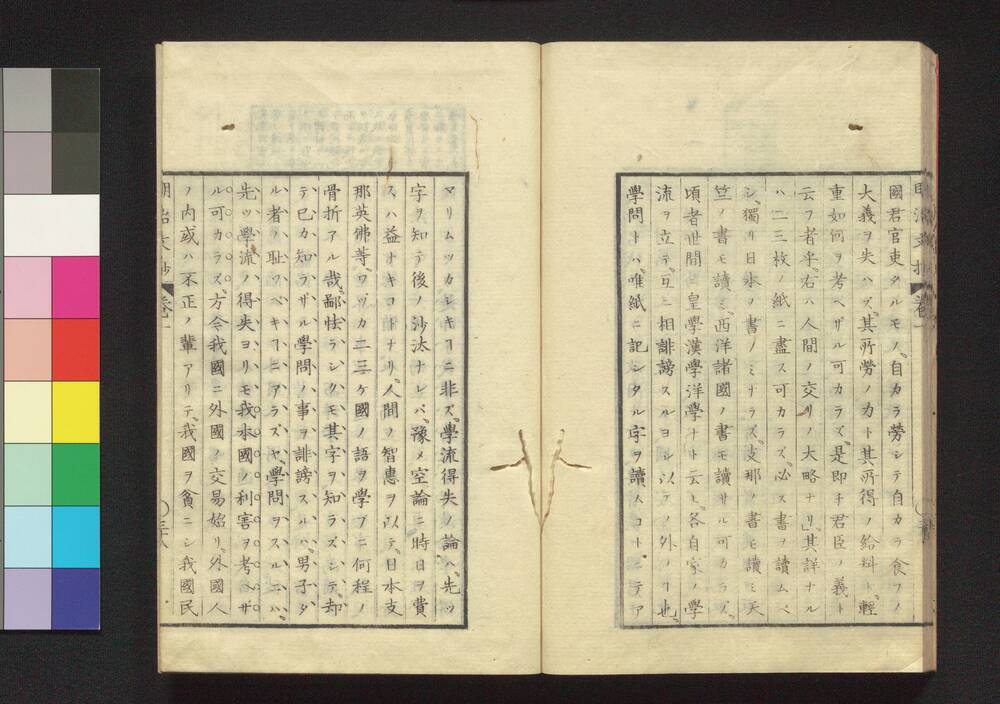 國君官吏タルモノ、自カラ勞シテ自カラ食フノ
大義ヲ失ハズ、其所勞ノカト其所得ノ給料ト、輕
重如何ヲ考ヘザル可カラズ、是即チ君臣ノ義ト
云フ者乎、右ハ人間ノ交リノ大略ナリ、其詳ナル
ハ二三枚ノ紙ニ盡ス可カラズ、必ス書ヲ讀ムベ
シ、獨リ日本ノ書ノミナラズ、支那ノ書モ讀ミ、天
竺ノ書モ讀ミ、西洋諸國ノ書モ讀サル可カラズ、
頃者世間ニ皇學漢學洋學ナト云ヒ、各自家ノ學
流ヲ立テ、互ニ相誹謗スルヨシ、以テノ外ノヿ也、
學問トハ、唯紙ニ記シタル字ヲ讀ムコトニテ、ア
マリムツカシキヿニ非ズ、學流得失ノ論ハ、先ツ
字ヲ知テ後ノ沙汰ナレバ、豫メ空論ニ時日ヲ費
スハ益ナキコトナリ、人間ノ智惠ヲ以テ、日本支
那英佛等、ワヅカ二三ケ國ノ語ヲ學ブニ何程ノ
骨折アル哉、鄙怯ラシクモ其字ヲ知ラズシテ、却
テ已カ知ラザル學問ノ事ヲ誹謗スルハ、男子タ
ル者ノ耻ツベキヿニアラズヤ、學問ヲスルニハ、
先ツ學流ノ得失ヨリモ我本國ノ利害ヲ考ヘザ
ル可カラズ、方今我國ニ外國ノ交易始リ、外國人
ノ内或ハ不正ノ輩アリテ、我國ヲ貧ニシ我國民